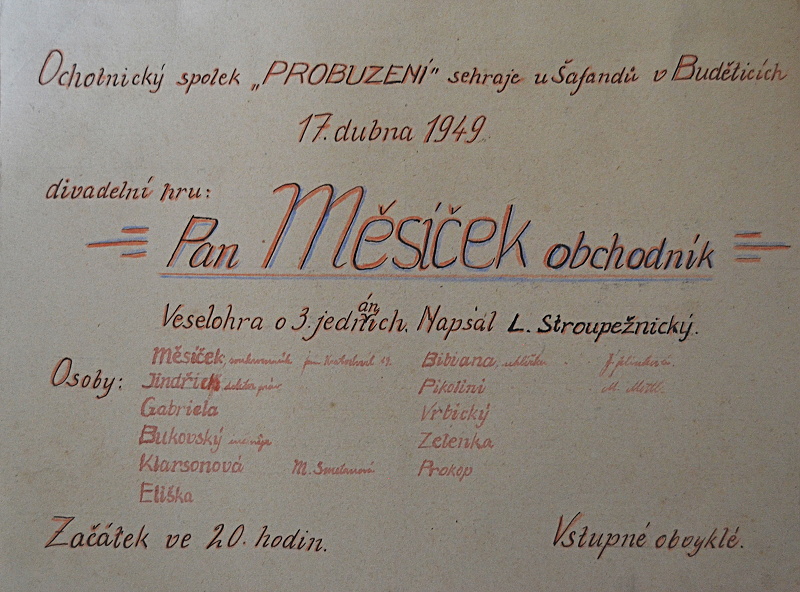 Ochotnický spolek „PROBUZENÍ” sehraje u Šafandů v Buděticích
17. dubna 1949
divadelní hru:
Pan Měsíček obchodník
Veselohra o 3. jednáních. Napsal L. Stroupežnický.
Osoby:
Měsíček,
Jindřich, doktor práv
Gabriela
Bukovský
Klarsonová M. Smetanová
Eliška
Bibiana,
Pikolini
Vrbický
Zelenka
Prokop
Začátek ve 20. hodin.
Vstupné obvyklé.